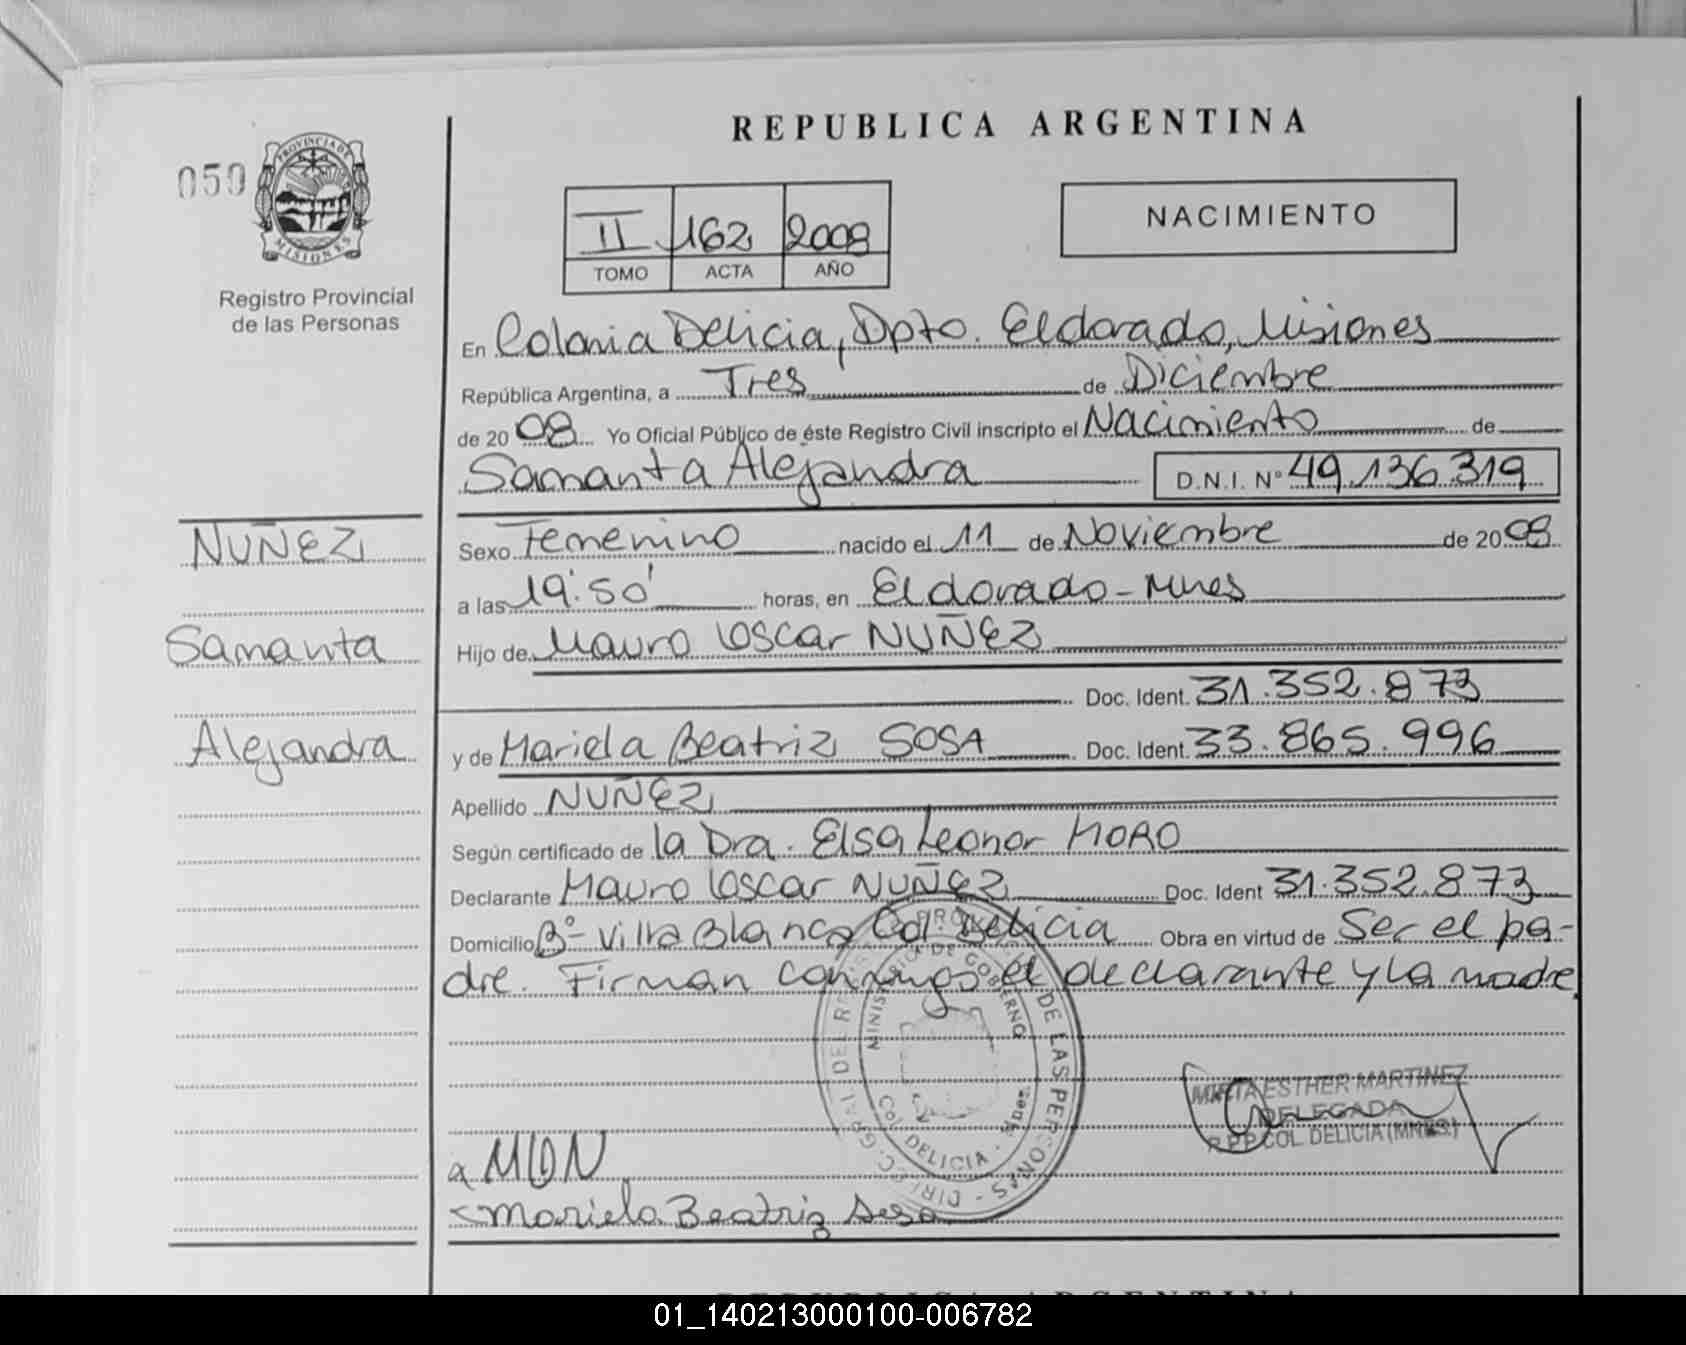 REPUBLICA ARGENTINA
050
PROVINCIA DE
MISIONES
Registro Provincial
de las Personas
II 162 2008
TOMO ACTA AÑO
NACIMIENTO
En Colonia Delicia, Dpto. Eldorado, Misiones
República Argentina, a Tres de Diciembre
de 2008 Yo Oficial Público de éste Registro Civil inscripto el Nacimiento de
Samanta Alejandra D.N.I. Nº 49.136.319
NUÑEZ
Samanta
Alejandra
Sexo Femenino nacido el 11 de Noviembre de 2008
a las 19:50' horas, en Eldorado - Mnes
Hijo de Mauro Oscar NUÑEZ
Doc. Ident. 31.352.873
y de Mariela Beatriz SOSA Doc. Ident. 33.865.996
Apellido NUÑEZ
Según certificado de la Dra. Elsa Leonor MORO
Declarante Mauro Oscar NUÑEZ Doc. Ident 31.352.873
Domicilio Bº Villa Blanca Col. Delicia Obra en virtud de Ser el pa-
dre. Firman conmigo el declarante y la madre
DE LAS PERSONAS - DIREC. GRAL. DEL
MINISTERIO DE GOBIERNO
Col. DELICIA - Mnes.
MIRTA ESTHER MARTINEZ
DELEGADA
R.P.P. COL. DELICIA (MNES.)
Mariela Beatriz Sosa
REPUBLICA ARGENTINA
01_140213000100-006782